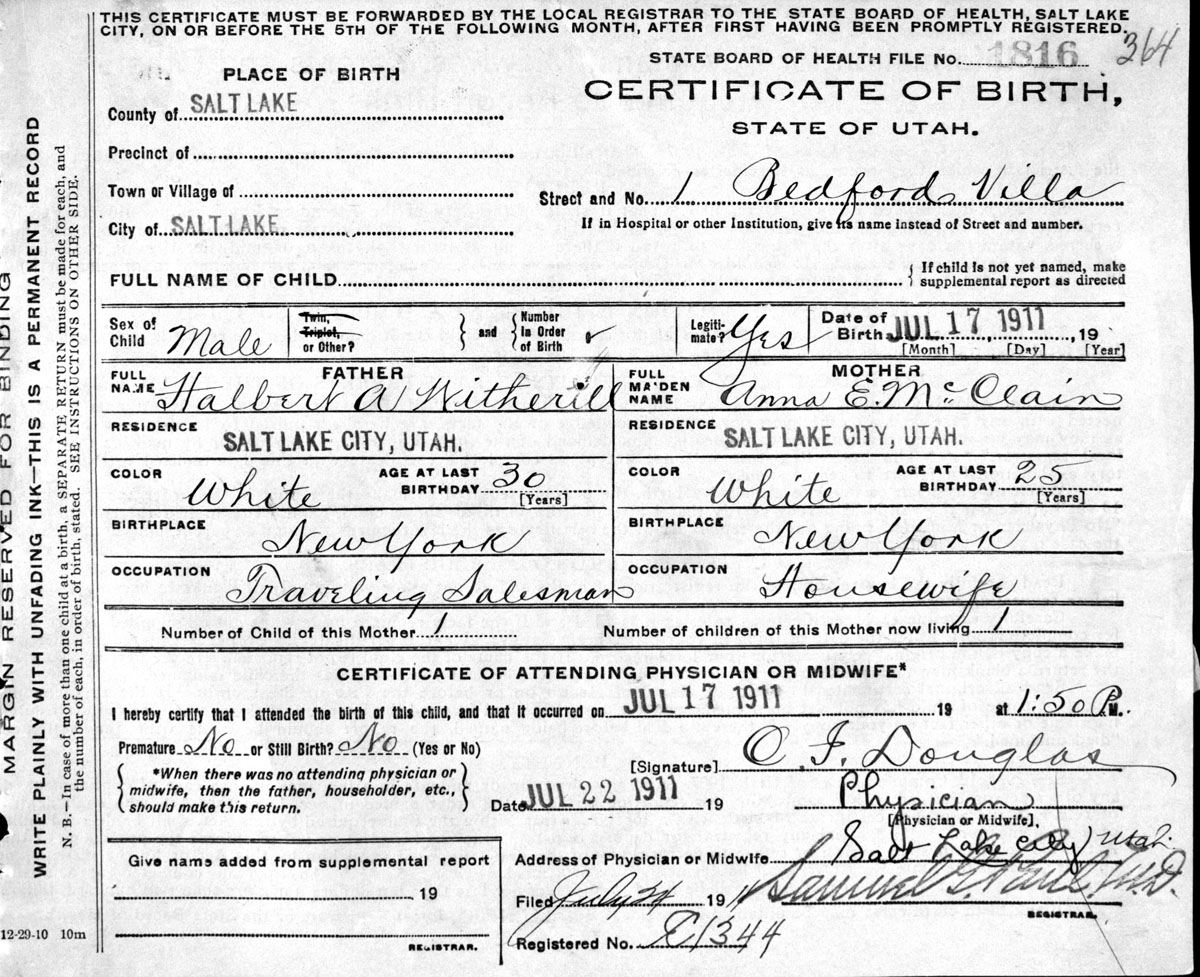 THIS CERTIFICATE MUST BE FORWARDED BY THE LOCAL REGISTRAR TO THE STATE BOARD OF HEALTH, SALT LAKE
CITY, ON OR BEFORE THE 5TH OF THE FOLLOWING MONTH, AFTER FIRST HAVING BEEN PROMPTLY REGISTERED.
364
STATE BOARD OF HEALTH FILE No. 1816
PLACE OF BIRTH
CERTIFICATE OF BIRTH,
STATE OF UTAH.
County of SALT LAKE
Precinct of
Town or Village of
Street and No. 1 Bedford Villa
City of SALT LAKE
If in Hospital or other Institution, give its name instead of Street and number.
FULL NAME OF CHILD
If child is not yet named, make
supplemental report as directed
Sex of Child Male
Twin, Triplet, or Other?
and Number in Order of Birth
Legiti-mate? Yes
Date of Birth JUL 17 1911, 19
[Month] [Day] [Year]
FATHER
FULL NAME Halbert A Witherill
MOTHER
FULL MAIDEN NAME Anna E. McClain
RESIDENCE SALT LAKE CITY, UTAH.
RESIDENCE SALT LAKE CITY, UTAH.
COLOR White AGE AT LAST BIRTHDAY 30 [Years]
COLOR White AGE AT LAST BIRTHDAY 25 [Years]
BIRTHPLACE New York
BIRTHPLACE New York
OCCUPATION Traveling Salesman
OCCUPATION Housewife
Number of Child of this Mother 1 Number of children of this Mother now living 1
CERTIFICATE OF ATTENDING PHYSICIAN OR MIDWIFE*
I hereby certify that I attended the birth of this child, and that it occurred on JUL 17 1911 19 at 1:50 P.M.
Premature No or Still Birth? No (Yes or No)
[Signature] C. F. Douglas
*When there was no attending physician or
midwife, then the father, householder, etc.,
should make this return.
Date JUL 22 1911 19 Physician
[Physician or Midwife],
Give name added from supplemental report
19
REGISTRAR.
Address of Physician or Midwife Salt Lake City Utah.
Filed July 24 191 Samuel G. Paul M.D.
REGISTRAR.
Registered No. C1344
12-29-10 10m
MARGIN RESERVED FOR BINDING
WRITE PLAINLY WITH UNFADING INK—THIS IS A PERMANENT RECORD
N. B.—In case of more than one child at a birth, a SEPARATE RETURN must be made for each, and
the number of each, in order of birth, stated. SEE INSTRUCTIONS ON OTHER SIDE.